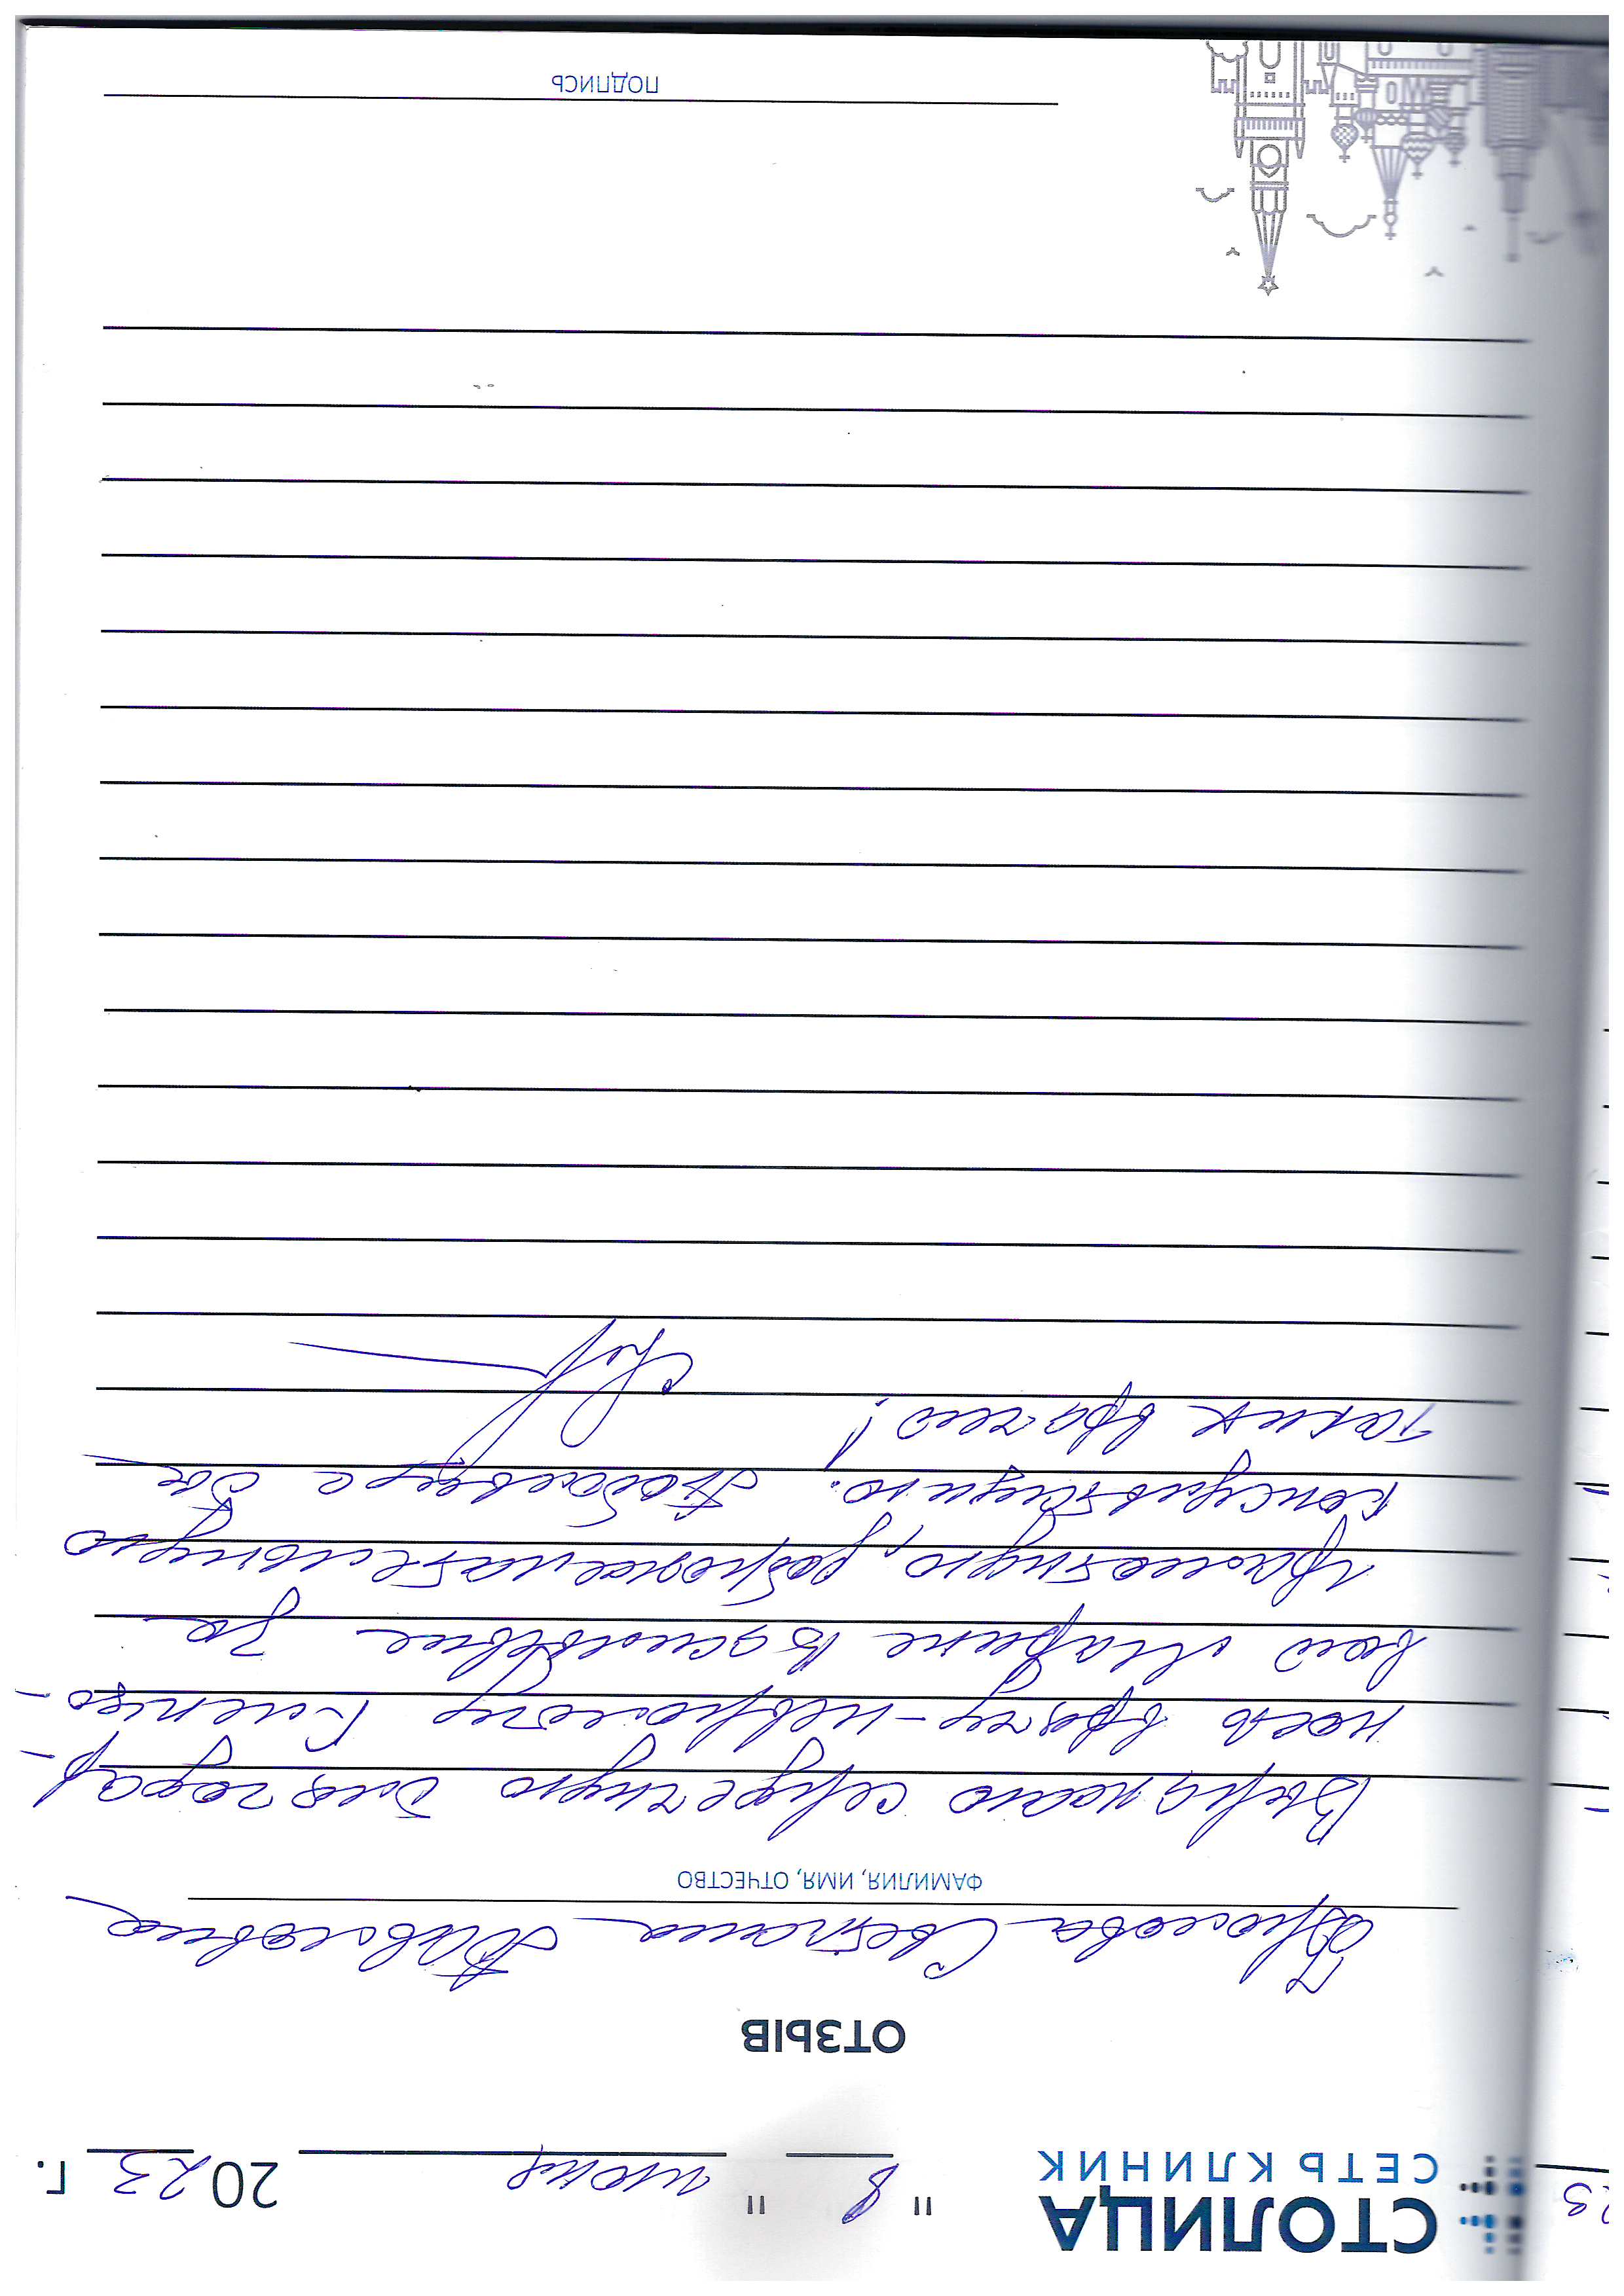 СТОЛИЦА
СЕТЬ КЛИНИК
" 8 " июня 2023 г.
ОТЗЫВ
Фролова Светлана Павловна
ФАМИЛИЯ, ИМЯ, ОТЧЕСТВО
Выражаю сердечную благодар-
ность врачу-неврологу Кленцо-
вой Марине Васильевне за
грамотную, доброжелательную
консультацию. Побольше бы
таких врачей!
ПОДПИСЬ